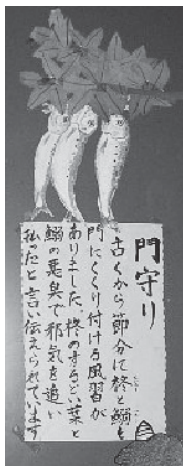 門守り
古くから節分に柊と鰯を
門にくくり付ける風習が
ありました。柊のするどい葉と
鰯の悪臭で邪気を追い
払ったと言い伝えられています